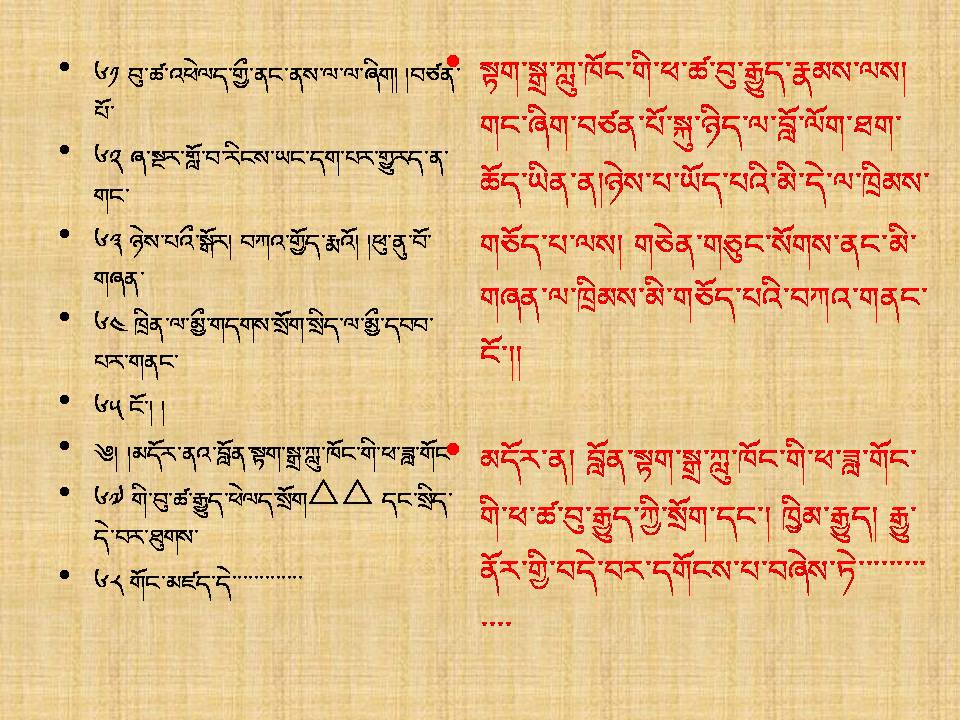 ༦༡ བུ་ཚ་འཕེལད་གྱྀ་ནང་ནས་ལ་ལ་ཞིག། །བཙན་
པོ་
༦༢ ཞ་སྔར་གློ་བ་རིངས་ཡང་དག་པར་གྱུརད་ན་
གང་
༦༣ ཉེས་པའྀ་སྒོར། བཀའ་གྱོད་རྨའོ། །ཕུ་ནུ་བོ་
གཞན་
༦༤ ཁྲིན་ལ་མྱི་གདགས་སྲོག་སྲིད་ལ་མྱི་དབབ་
པར་གནང་
༦༥ ངོ་། །
༄། །མདོར་ནའ་བློན་སྟག་སྒྲ་ཀླུ་ཁོང་གི་ཕ་ཟླ་གོང
༦༧ གི་བུ་ཚ་རྒྱུད་ཕེལད་སྲོག△△ དང་སྲིད་
དེ་བར་ཐུགས་
༦༨ གོང་མཛད་དེ་…………
སྟག་སྒྲ་ཀླུ་ཁོང་གི་ཕ་ཚ་བུ་རྒྱུད་རྣམས་ལས།
གང་ཞིག་བཙན་པོ་སྐུ་ཉིད་ལ་བློ་ལོག་ཐག་
ཆོད་ཡིན་ན།ཉེས་པ་ཡོད་པའི་མི་དེ་ལ་ཁྲིམས་
གཅོད་པ་ལས། གཅེན་གཅུང་སོགས་ནང་མི་
གཞན་ལ་ཁྲིམས་མི་གཅོད་པའི་བཀའ་གནང་
ངོ་།།
མདོར་ན། བློན་སྟག་སྒྲ་ཀླུ་ཁོང་གི་ཕ་ཟླ་གོང་
གི་ཕ་ཚ་བུ་རྒྱུད་ཀྱི་སྲོག་དང་། ཁྱིམ་རྒྱུད། རྒྱུ་
ནོར་གྱི་བདེ་བར་དགོངས་པ་བཞེས་ཏེ་………
….